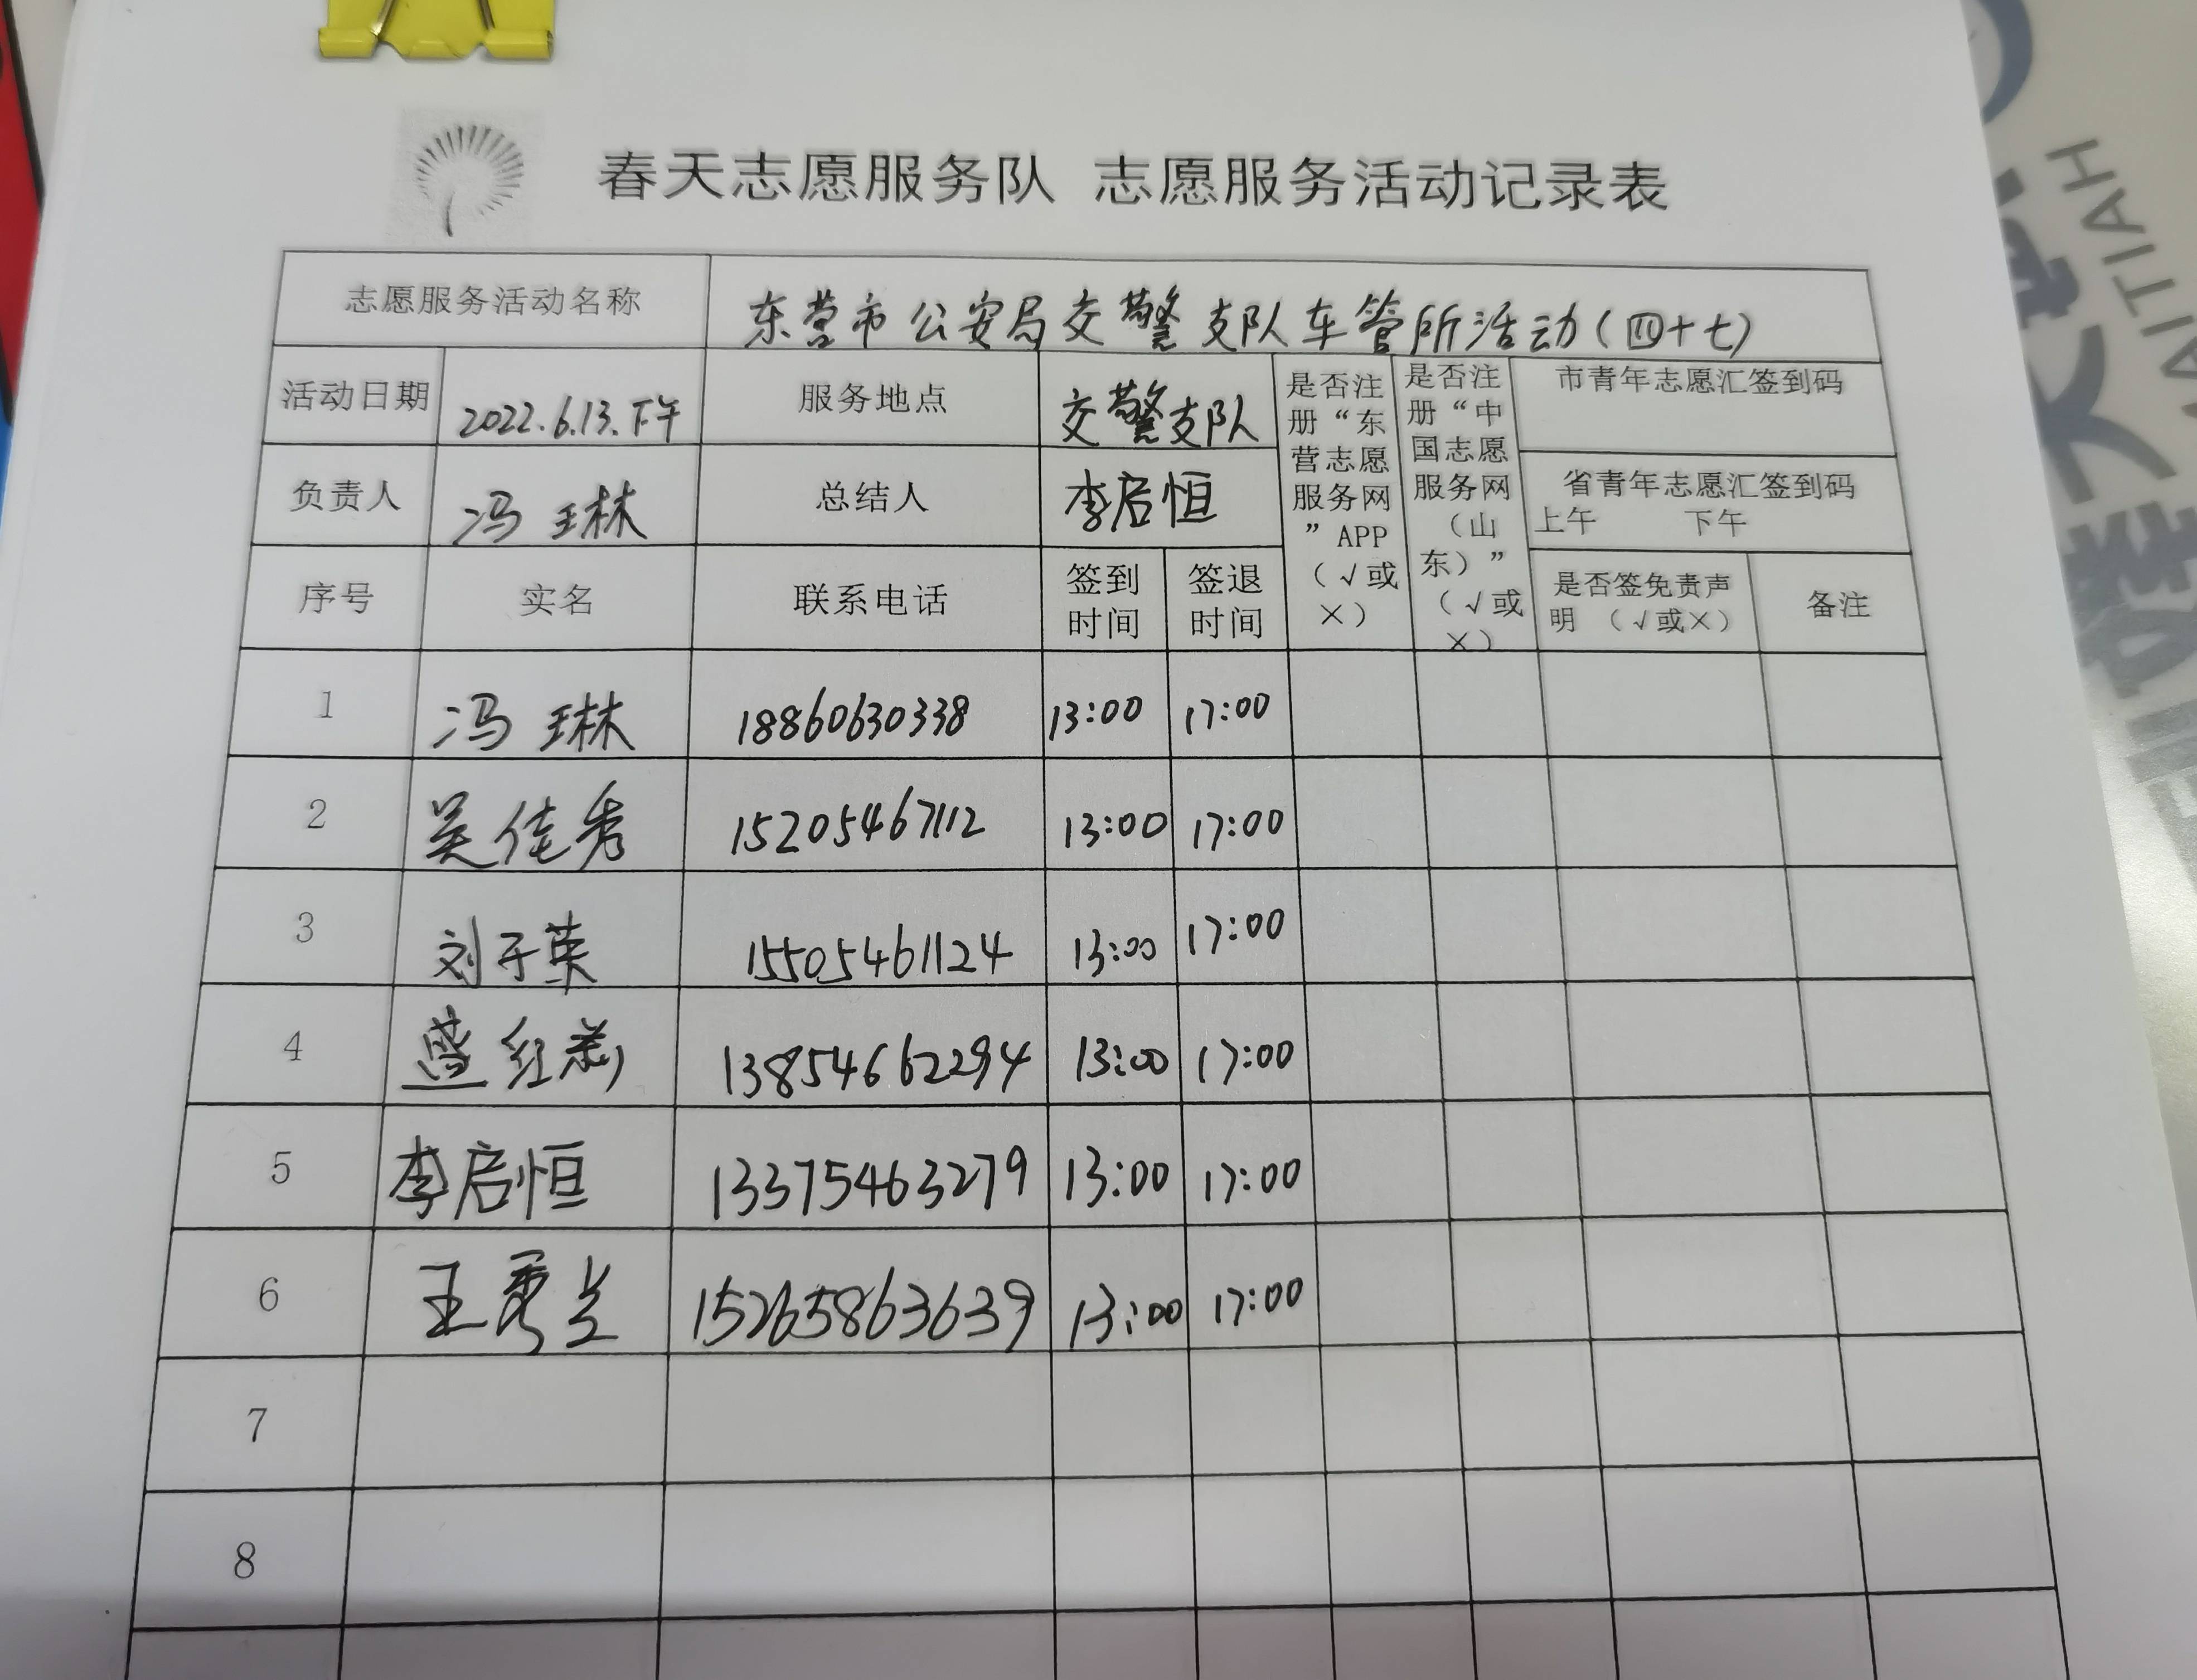 春天志愿服务队 志愿服务活动记录表
志愿服务活动名称 东营市公安局交警支队车管所活动(四十七)
活动日期 2022.6.13.下午 服务地点 交警支队
是否注册“东营志愿服务网”APP（√或×）
是否注册“中国志愿服务网（山东）”（√或×）
市青年志愿汇签到码
负责人 冯琳 总结人 李启恒
省青年志愿汇签到码
上午 下午
序号 实名 联系电话 签到时间 签退时间 是否签免责声明（√或×） 备注
1 冯琳 18860630338 13:00 17:00
2 吴佳秀 15205467112 13:00 17:00
3 刘子英 15505461124 13:00 17:00
4 13854662294 13:00 17:00
5 李启恒 13375463279 13:00 17:00
6 王秀兰 15265863639 13:00 17:00
7
8
HAITIAH